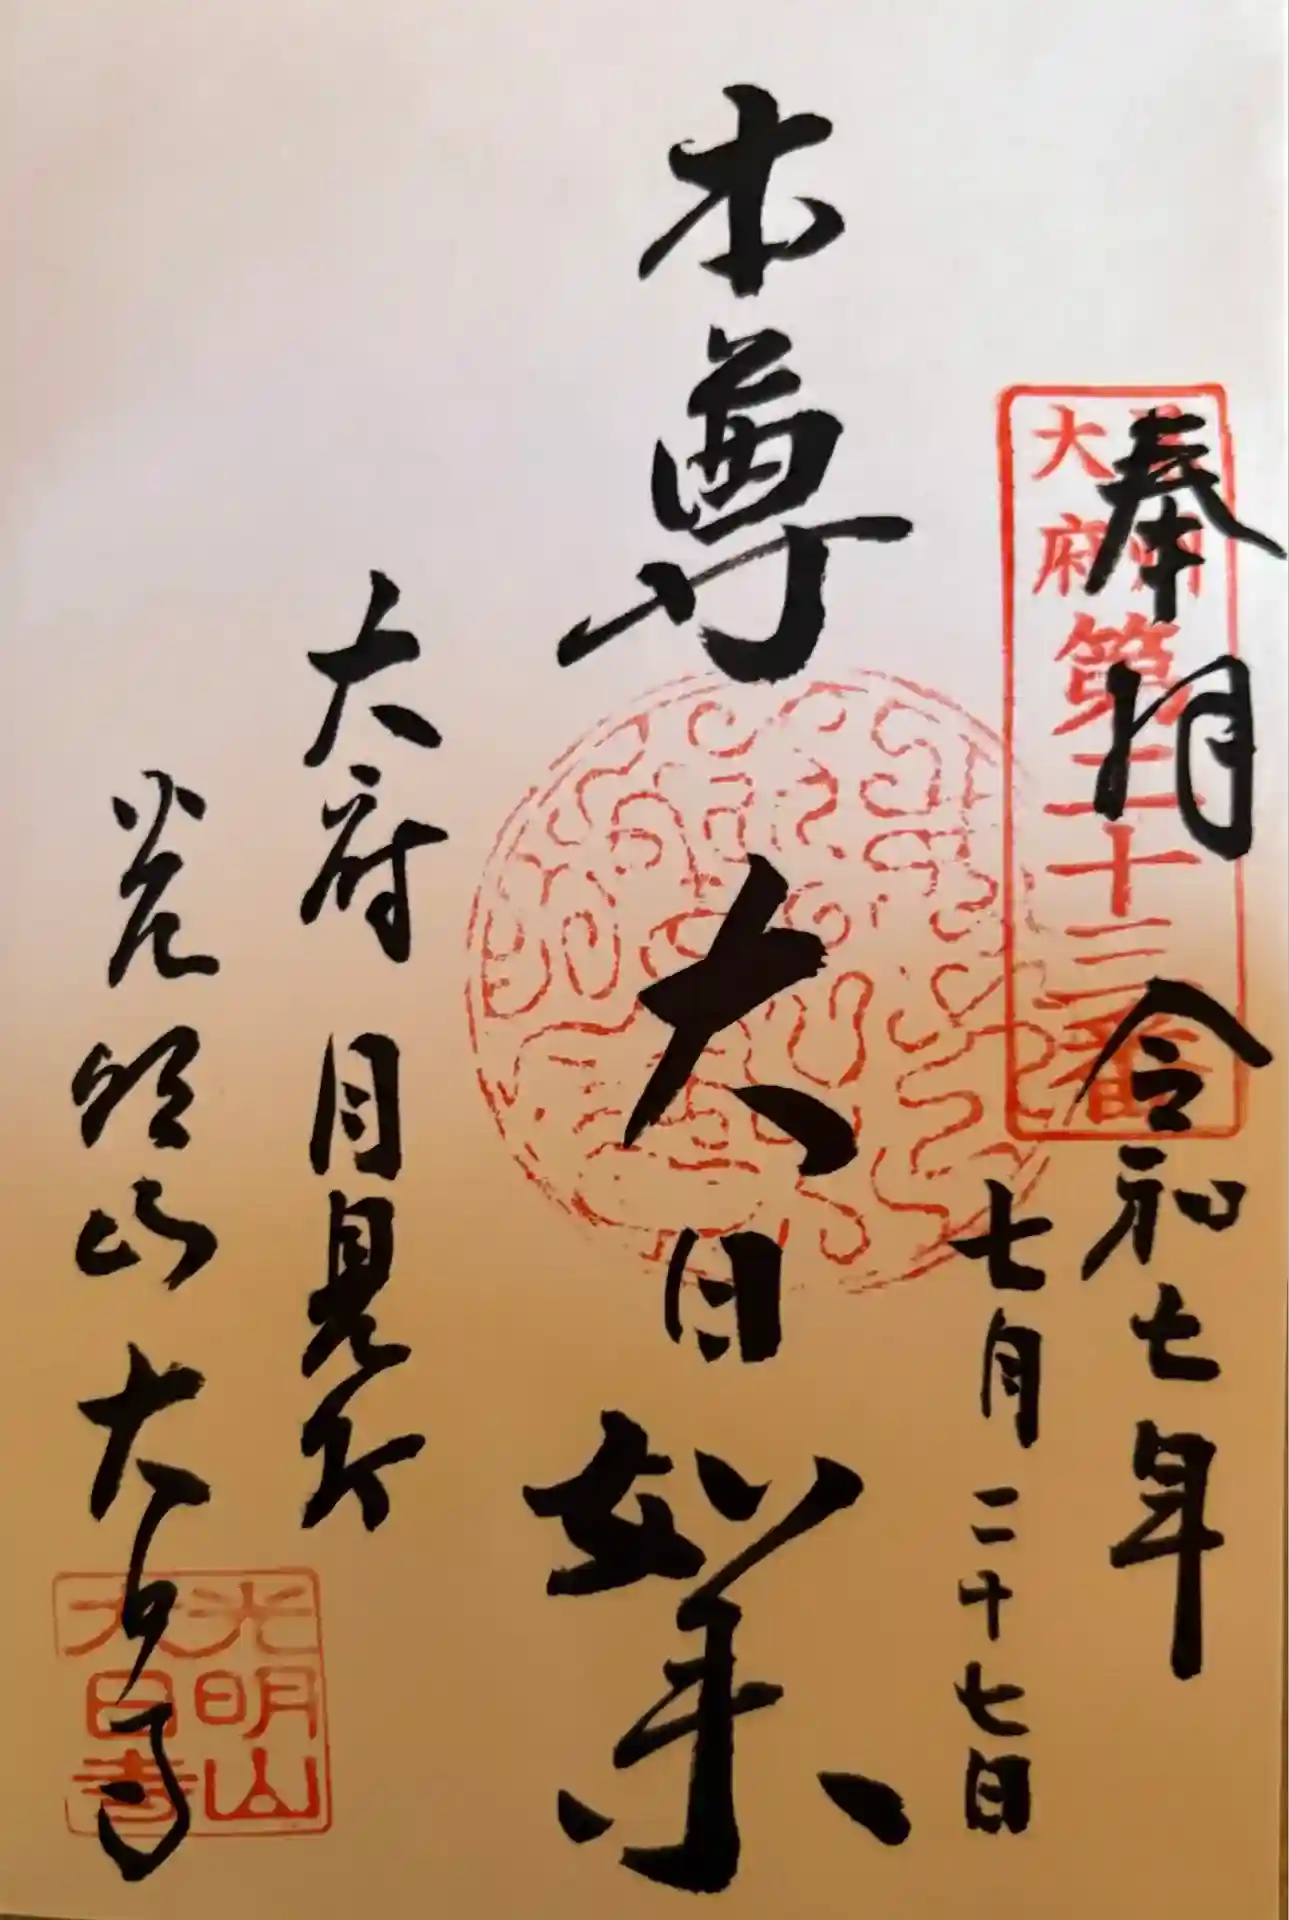 奉拝 令和七年
七月二十七日
大府
第二十三番
本尊 大日如来
大府 月見町
光明山 大日寺
光明山
大日寺